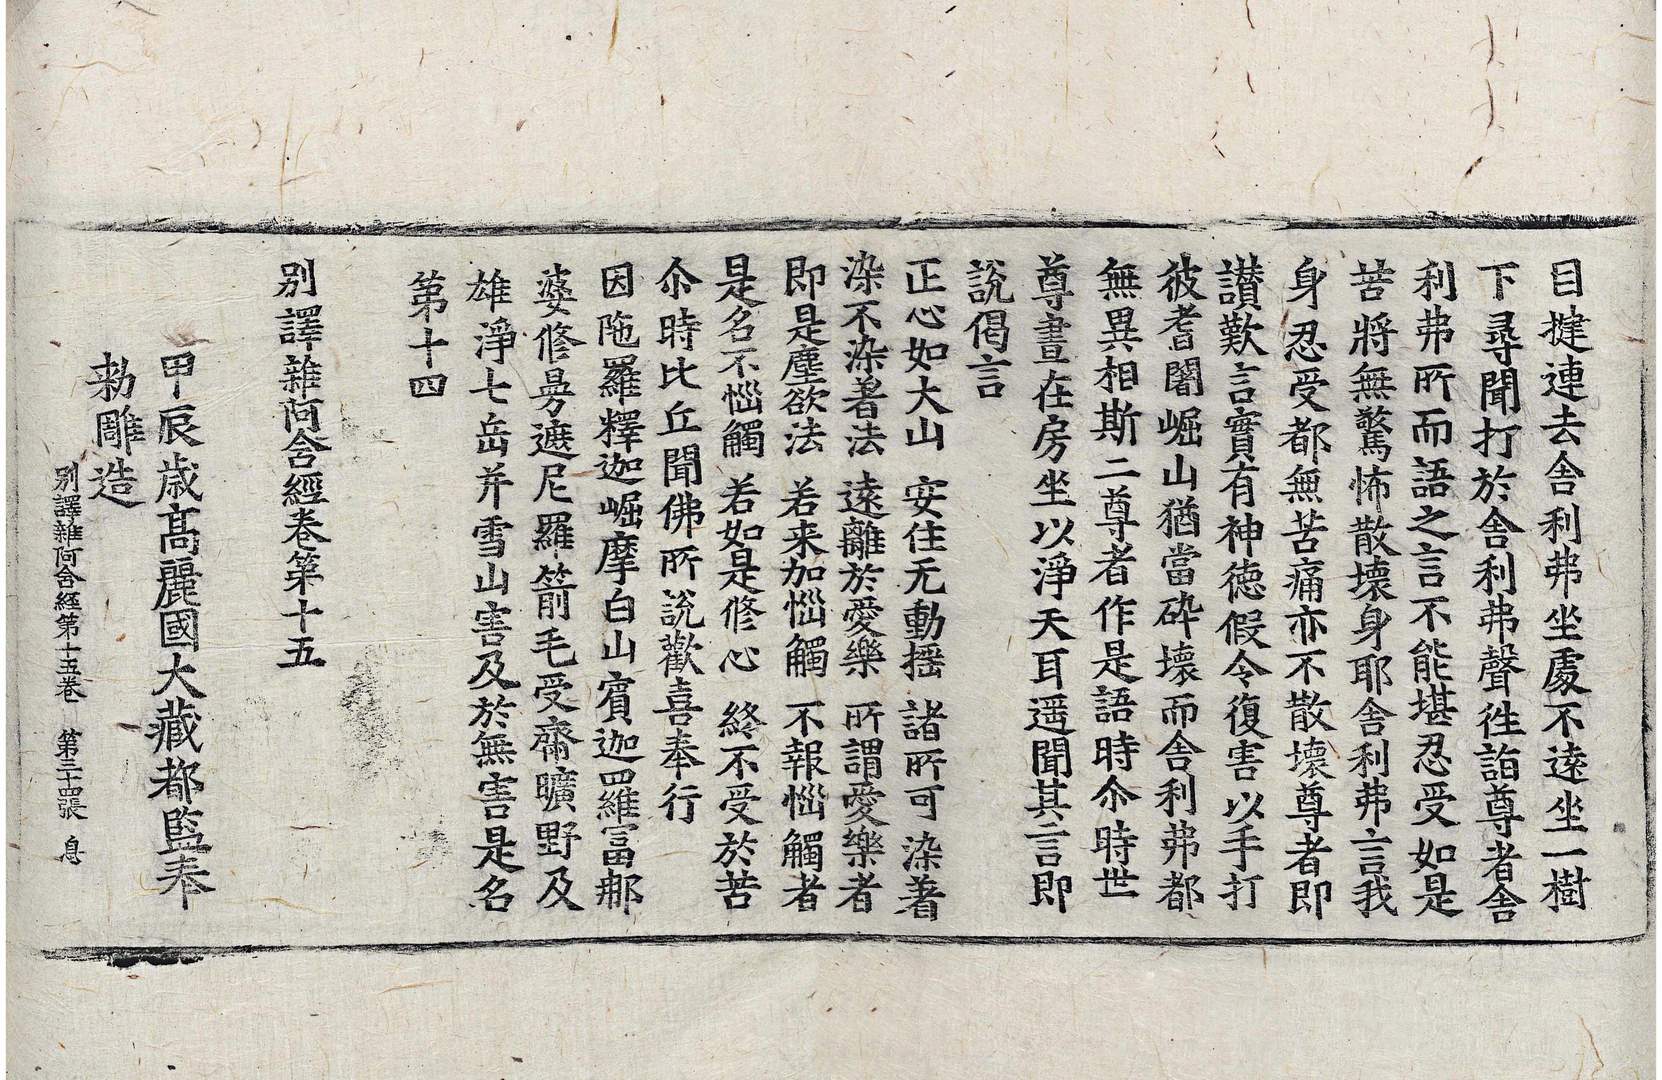 目揵連去舍利弗坐處不遠坐一樹
下尋聞打於舍利弗聲徃詣尊者舍
利弗所而語之言不能堪忍受如是
苦將無驚怖散壞身耶舍利弗言我
身忍受都無苦痛亦不散壞尊者即
讃歎言實有神徳假令復害以手打
彼耆闍崛山猶當碎壞而舍利弗都
無異相斯二尊者作是語時尒時世
尊晝在房坐以淨天耳遥聞其言即
說偈言
正心如大山 安住无動揺 諸所可染著
染不染著法 遠離於愛樂 所謂愛樂者
即是塵欲法 若来加惱觸 不報惱觸者
是名不惱觸 若如是修心 終不受於苦
尒時比丘聞佛所說歡喜奉行
因陁羅釋迦崛摩白山賔迦羅富那
婆修曼遮尼羅箭毛受齋曠野及
雄淨七岳并雪山害及於無害是名
第十四
别譯雜阿含經卷第十五
甲辰歳髙麗國大藏都監奉
勑雕造
别譯雜阿含經第十五卷 第三十四張 息